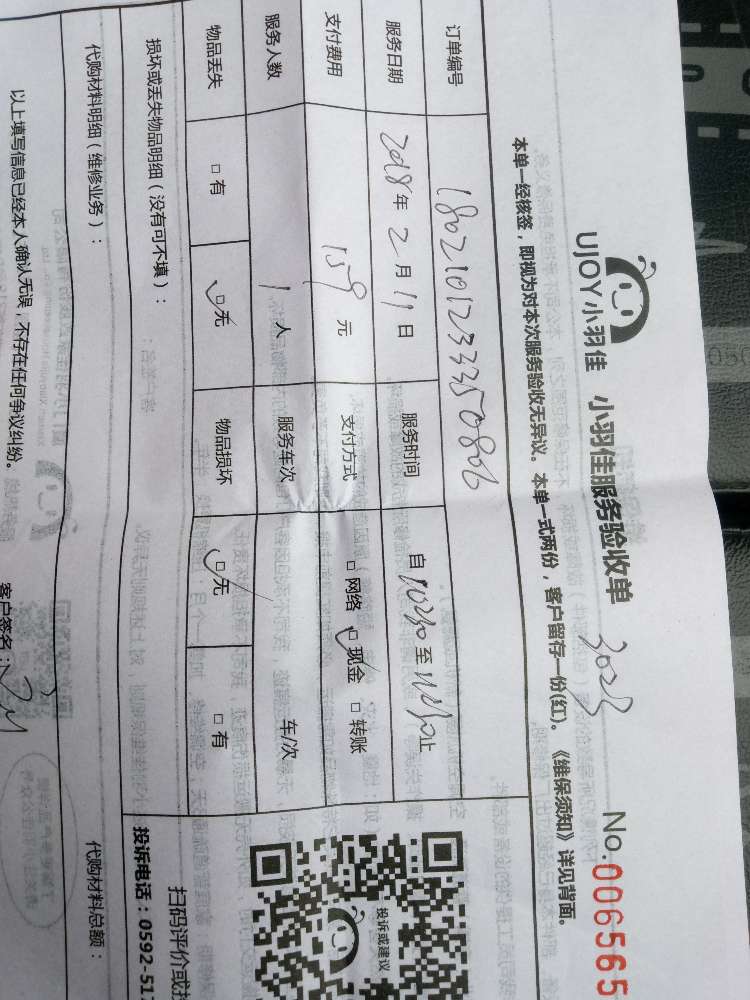 UJOY小羽佳 小羽佳服务验收单 3023 No.006565
本单一经核签，即视为对本次服务验收无异议。本单一式两份，客户留存一份(红)。《维保须知》详见背面。
订单编号 1802101233350806
服务日期 2018年2月11日 服务时间 自10:30至11:30止
支付费用 159元 支付方式 □网络 ☑现金 □转账
服务人数 1人 服务车次 车/次
物品丢失 □有 ☑无 物品损坏 ☑无 □有
损坏或丢失物品明细（没有可不填）：
代购材料明细（维修业务）： 代购材料总额：
以上填写信息已经本人确认无误，不存在任何争议纠纷。 客户签名：
投诉或建议
扫码评价或
投诉电话：0592-517